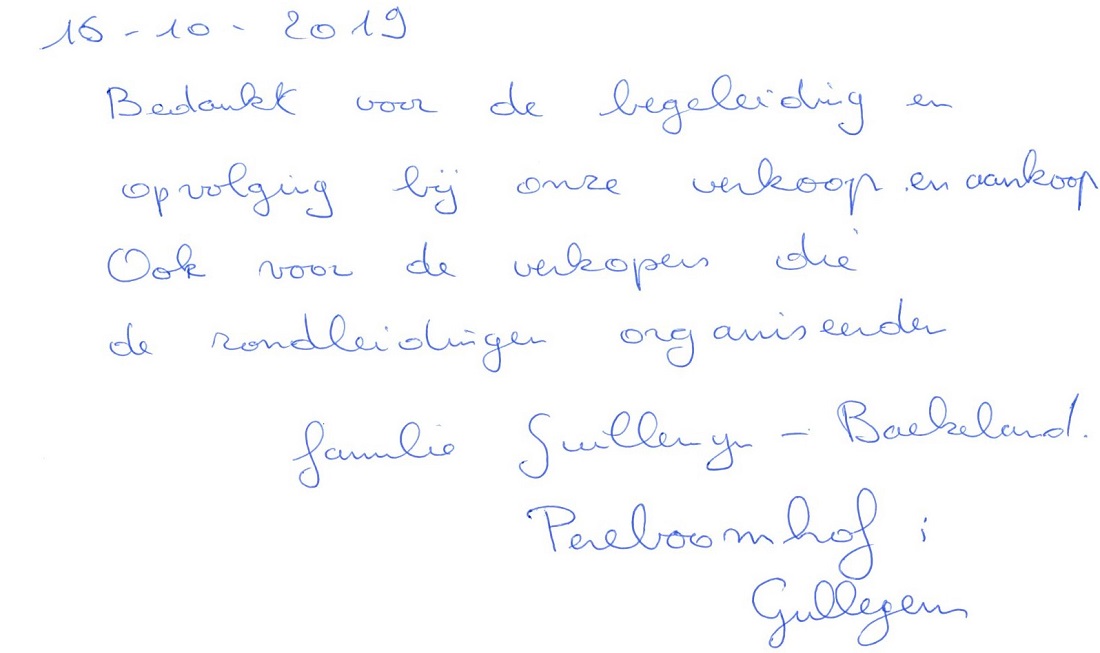 16-10-2019
Bedankt voor de begeleiding en
opvolging bij onze verkoop en aankoop
Ook voor de verkopers die
de rondleidingen organiseerden
familie - Baekeland.
Pereboomhof
Gullegem